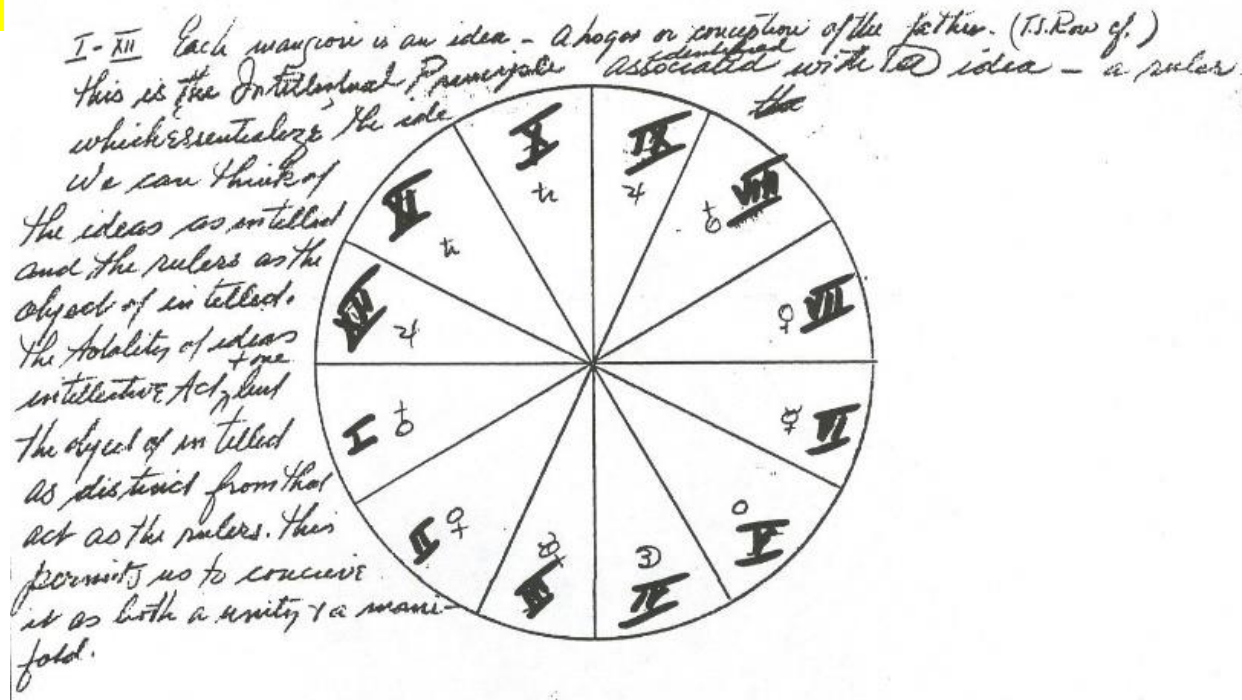 I-XII Each mansion is an idea - a logos or conception of the father. (T.S. Row cf.)
identified
this is the Intellectual Principle associated with idea - a ruler
the
which Essentialize the ide
We can think of
the ideas as intellect
and the rulers as the
object of intellect.
The totality of ideas
+ one
intellective Act, but
the object of intellect
as distinct from that
act as the rulers. This
permits us to concieve
it as both a unity & a mani-
fold.
X
IX
♄
♃
VIII
♁
XI
♄
VII
♀
XII
♃
I
♁
VI
☿
II
♀
V
III
☿
IV